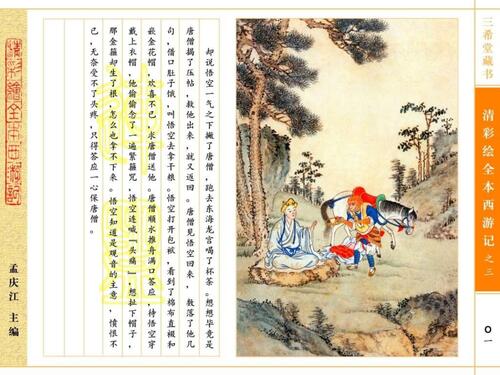 三希堂藏书
清彩绘全本西游记 之三
〇一
却说悟空一气之下撇了唐僧，跑去东海龙宫喝了杯茶。想想毕竟是
唐僧揭了压帖，救他出来，就又返回。唐僧见悟空回来，数落了他几
句，借口肚子饿，叫悟空去拿干粮。悟空打开包袱，看到了棉布直裰和
嵌金花帽，欢喜不已，求唐僧送他。唐僧顺水推舟满口答应，待悟空穿
戴上衣帽，他偷偷念了一遍紧箍咒，悟空连喊「头痛」，想扯下帽子，
那金箍却生了根，怎么也拿不下来。悟空知道是观音的主意，愤恨不
已，无奈受不了头疼，只得答应一心保唐僧。
清彩繪全本西遊記
孟庆江 主编